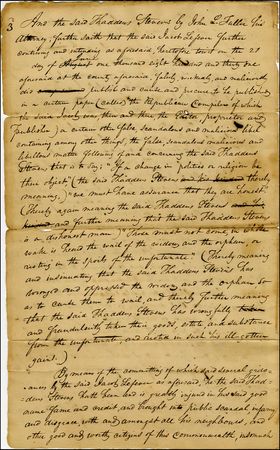 3
And the said Thaddeus Stevens by John L. Fuller his
Attorney, further saith that the said Jacob Lefever further
contriving and intending as aforesaid, heretofore to wit on the
21 day of one thousand eight hundred and thirty one
aforesaid at the county aforesaid, falsely, wickedly, and maliciously
did publish and cause and procure to be published
in a certain paper (called the Republican Compiler of which
the said Jacob was then and there the Editor, proprietor and
Publisher) a certain other false, scandalous and malicious libel
containing among other things, the false, scandalous malicious and
libellous matter following of and concerning the said Thaddeus
Stevens, that is to say: "If a change in politics or religion be
their object" (the said Thaddeus Stevens thereby
meaning,) "we must have assurance that they are honest"
(Thereby again meaning the said Thaddeus Stevens
and further meaning that the said Thaddeus Stevens
is a dishonest man) "Those must not come, in whose
wake is heard the wail of the widow, and the orphan, or
rioting in the spoils of the unfortunate" (Thereby meaning
and insinuating that the said Thaddeus Stevens has
wronged and oppressed the widow, and the orphan so
as to cause them to wail, and thereby further meaning
that the said Thaddeus Stevens has wrongfully
and fraudulently taken the goods, estate, and substance
from the unfortunate, and rioted in such his ill-gotten
gains.)
By means of the committing of which said several griev-
ances by the said Jacob Lefever as aforesaid, he the said Thad-
deus Stevens hath been and is greatly injured in his said good
name fame and credit, and brought into public scandal, infamy
and disgrace, with and amongst all his neighbours, and
other good and worthy citizens of this Commonwealth, insomuch